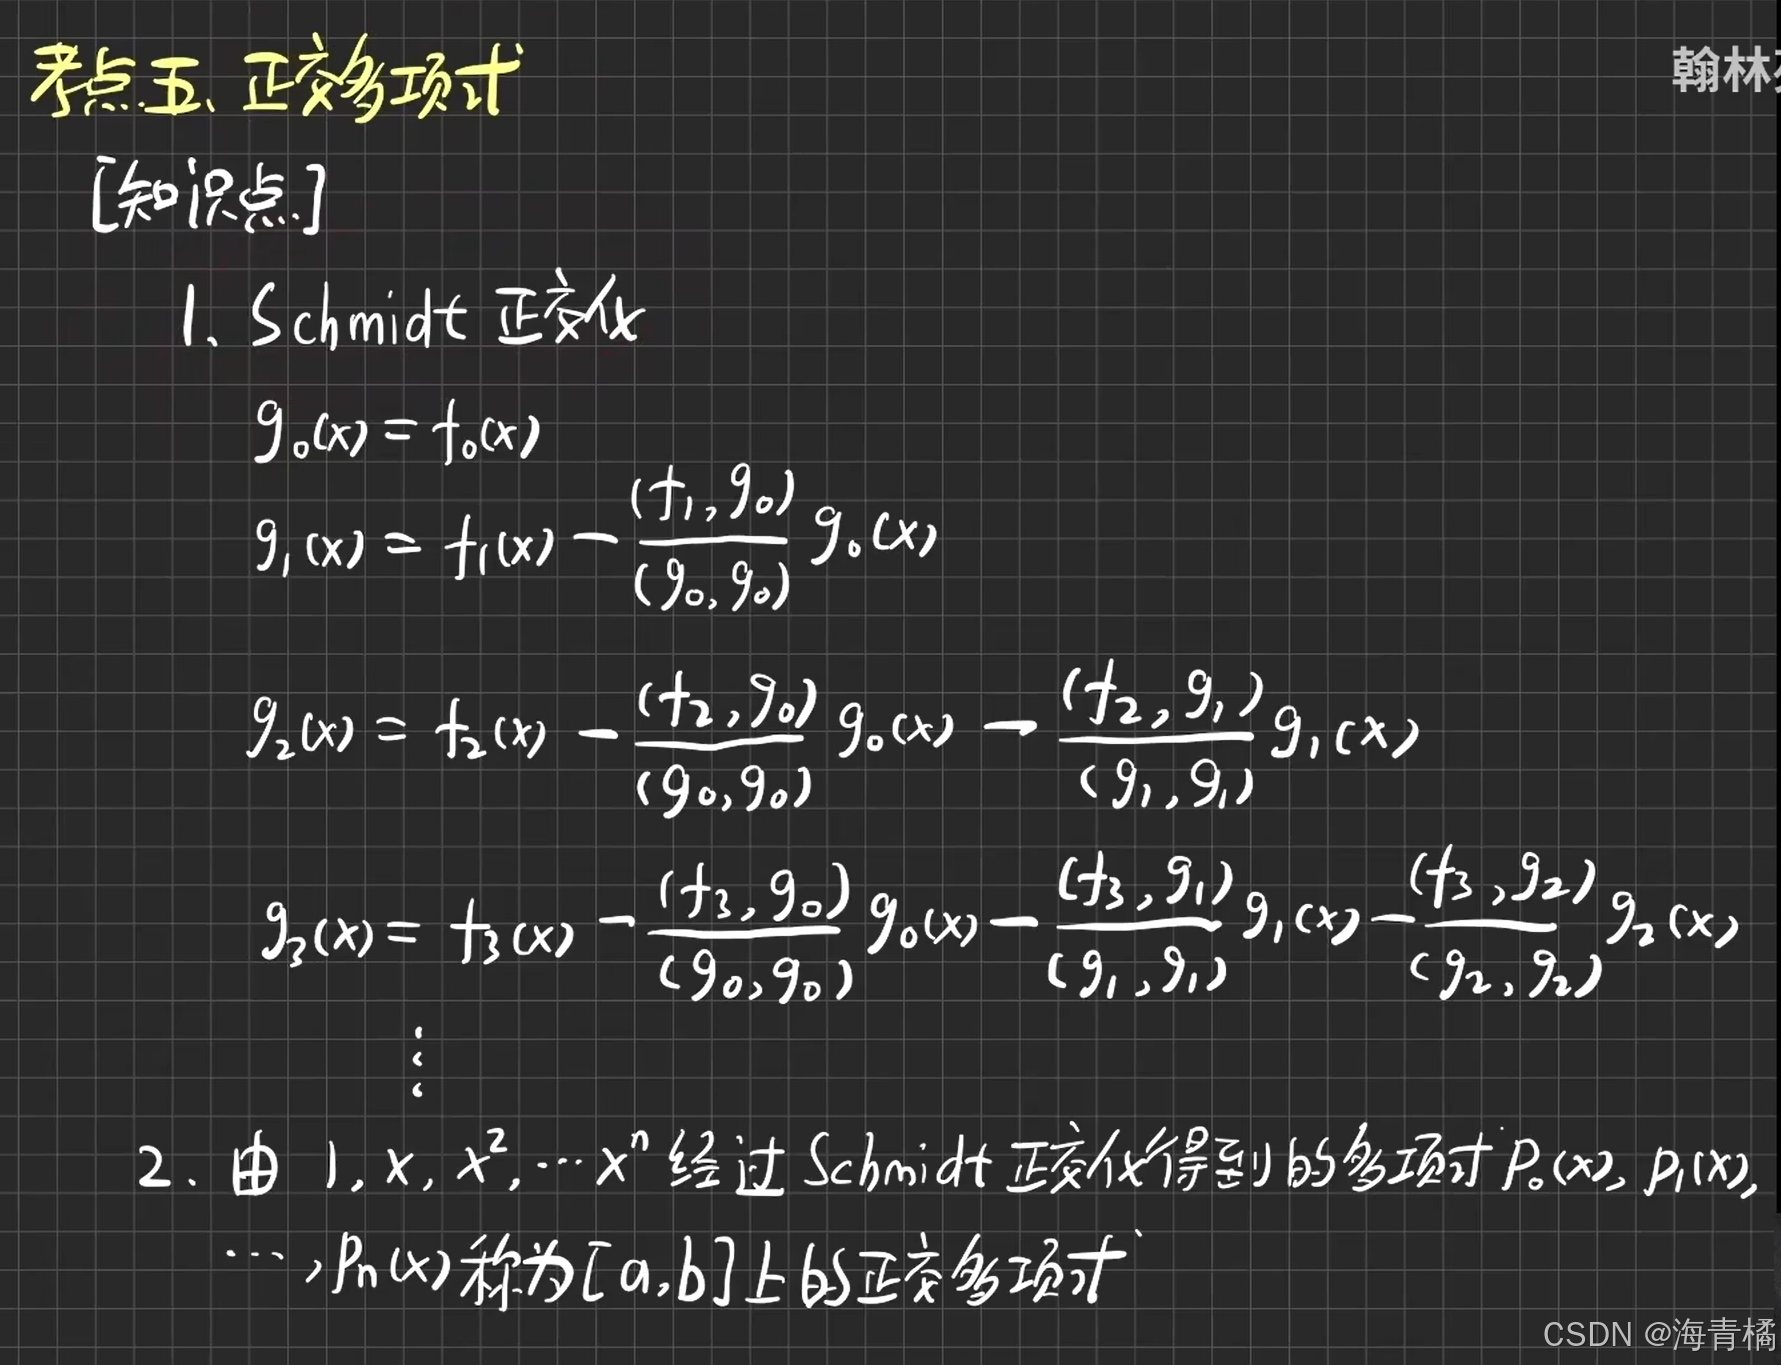 考点五、正交多项式
翰林
[知识点]
1、Schmidt 正交化
g₀(x) = f₀(x)
g₁(x) = f₁(x) - (f₁, g₀)/(g₀, g₀) g₀(x)
g₂(x) = f₂(x) - (f₂, g₀)/(g₀, g₀) g₀(x) - (f₂, g₁)/(g₁, g₁) g₁(x)
g₃(x) = f₃(x) - (f₃, g₀)/(g₀, g₀) g₀(x) - (f₃, g₁)/(g₁, g₁) g₁(x) - (f₃, g₂)/(g₂, g₂) g₂(x)
⋮
2. 由 1, x, x², … xⁿ 经过 Schmidt 正交化得到的多项式 P₀(x), P₁(x),
…, Pn(x) 称为 [a, b] 上的正交多项式
CSDN @海青橘